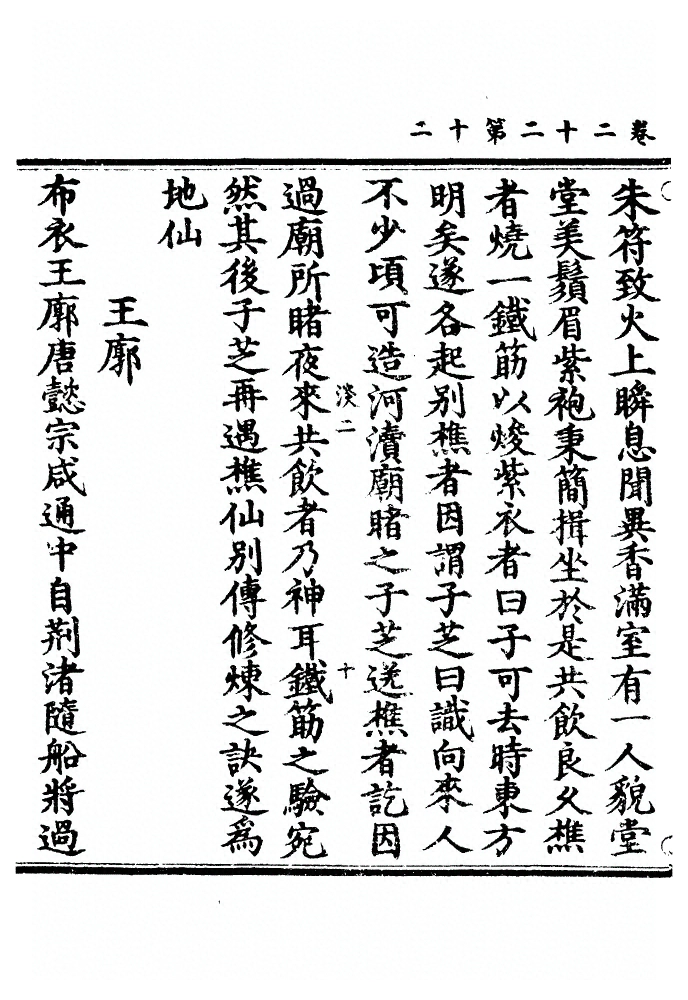 卷二十二第十二
朱符致火上瞬息聞異香滿室有一人貌堂
堂美鬚眉紫袍秉簡揖坐於是共飲良久樵
者燒一鐵筯以焌紫衣者曰子可去時東方
明矣遂各起別樵者因謂子芝曰識向來人
不少頃可造河瀆廟睹之子芝送樵者訖因
淡二 十
過廟所睹夜來共飲者乃神耳鐵筯之驗宛
然其後子芝再遇樵仙別傳修煉之訣遂為
地仙
王廓
布衣王廓唐懿宗咸通中自荊渚隨船將過